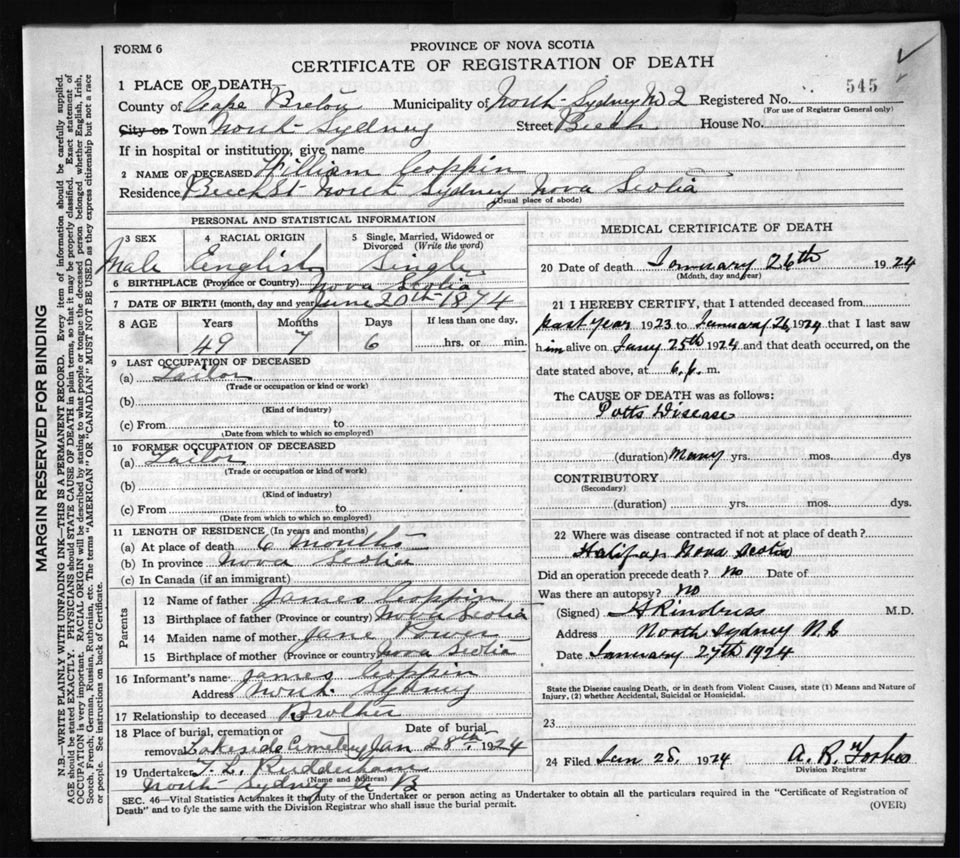 FORM 6
PROVINCE OF NOVA SCOTIA
CERTIFICATE OF REGISTRATION OF DEATH
1 PLACE OF DEATH
County of Cape Breton Municipality of North-Sydney No 2 Registered No. 545
(For use of Registrar General only)
City or Town North Sydney Street Beech House No.
If in hospital or institution, give name
2 NAME OF DECEASED William Coppin
Residence Beech St North Sydney Nova Scotia
(Usual place of abode)
PERSONAL AND STATISTICAL INFORMATION
3 SEX 4 RACIAL ORIGIN 5 Single, Married, Widowed or Divorced (Write the word)
Male English Single
6 BIRTHPLACE (Province or Country) Nova Scotia
7 DATE OF BIRTH (month, day and year) June 20th-1874
8 AGE Years Months Days If less than one day,
49 7 6 hrs. or min.
9 LAST OCCUPATION OF DECEASED
(a) Tailor
(Trade or occupation or kind of work)
(b)
(Kind of industry)
(c) From to
(Date from which to which so employed)
10 FORMER OCCUPATION OF DECEASED
(a) Tailor
(Trade or occupation or kind of work)
(b)
(Kind of industry)
(c) From to
(Date from which to which so employed)
11 LENGTH OF RESIDENCE (In years and months)
(a) At place of death 6 months
(b) In province Nova Scotia
(c) In Canada (if an immigrant)
Parents
12 Name of father James Coppin
13 Birthplace of father (Province or country) Nova Scotia
14 Maiden name of mother Jane Power
15 Birthplace of mother (Province or country) Nova Scotia
16 Informant's name James Coppin
Address North Sydney
17 Relationship to deceased Brother
18 Place of burial, cremation or removal Date of burial
Lakeside Cemetery Jan 28th, 1924
19 Undertaker T. L. Ruddesham
(Name and Address)
North Sydney C B
MEDICAL CERTIFICATE OF DEATH
20 Date of death January 26th 1924
(Month, day and year)
21 I HEREBY CERTIFY, that I attended deceased from
past year 1923 to January 26 1924 that I last saw
him alive on Jany 25th 1924 and that death occurred, on the
date stated above, at 6 p. m.
The CAUSE OF DEATH was as follows:
Potts Disease
(duration) Many yrs. mos. dys
CONTRIBUTORY
(Secondary)
(duration) yrs. mos. dys.
22 Where was disease contracted if not at place of death?
Halifax Nova Scotia
Did an operation precede death? No Date of
Was there an autopsy? No
(Signed) M.D.
Address North Sydney N.S
Date January 27th 1924
State the Disease causing Death, or in death from Violent Causes, state (1) Means and Nature of
Injury, (2) whether Accidental, Suicidal or Homicidal.
23
24 Filed Jan 28, 1924 A. R. Forbes
Division Registrar
SEC. 46—Vital Statistics Act makes it the duty of the Undertaker or person acting as Undertaker to obtain all the particulars required in the "Certificate of Registration of
Death" and to fyle the same with the Division Registrar who shall issue the burial permit.
(OVER)
MARGIN RESERVED FOR BINDING
N.B.—WRITE PLAINLY WITH UNFADING INK—THIS IS A PERMANENT RECORD. Every item of information should be carefully supplied.
AGE should be stated EXACTLY. PHYSICIANS should STATE CAUSE OF DEATH in plain terms, so that it may be properly classified. Exact statement of
OCCUPATION is very important. RACIAL ORIGIN will be described by stating to what people or tongue the deceased person belonged whether English, Irish,
Scotch, French, German, Russian, Ruthenian, etc. The terms "AMERICAN" or "CANADIAN" MUST NOT BE USED as they express citizenship but not a race
or people. See instructions on back of Certificate.